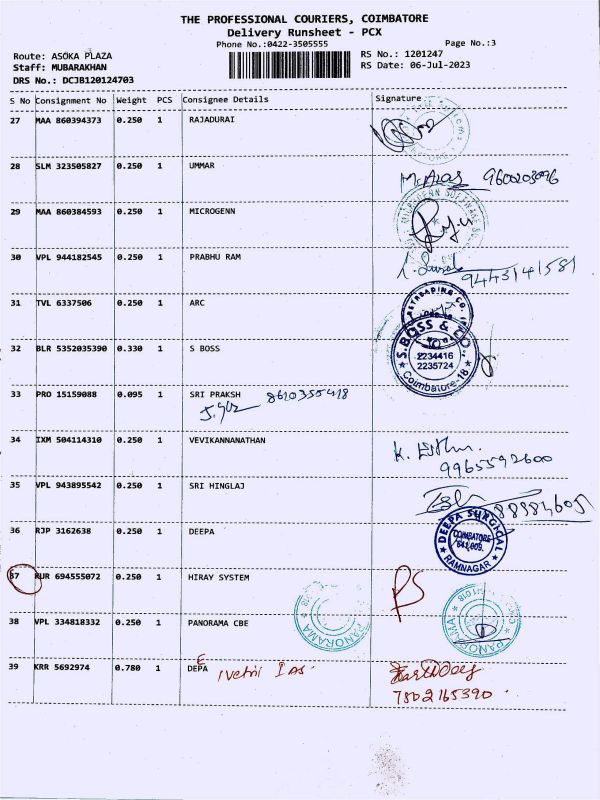 THE PROFESSIONAL COURIERS, COIMBATORE
Delivery Runsheet - PCX
Phone No.:0422-3505555 Page No.:3
Route: ASOKA PLAZA RS No.: 1201247
Staff: MUBARAKHAN RS Date: 06-Jul-2023
DRS No.: DCJB120124703
S No Consignment No Weight PCS Consignee Details Signature
27 MAA 860394373 0.250 1 RAJADURAI
28 SLM 323505827 0.250 1 UMMAR
29 MAA 860384593 0.250 1 MICROGENN
30 VPL 944182545 0.250 1 PRABHU RAM
9443141581
31 TVL 6337506 0.250 1 ARC
32 BLR 5352035390 0.330 1 S BOSS
S.BOSS & CO.
2234416
2235724
Coimbatore-18
33 PRO 15159088 0.095 1 SRI PRAKSH 8610355418
34 IXM 504114310 0.250 1 VEVIKANNANATHAN
9965592600
35 VPL 943895542 0.250 1 SRI HINGLAJ
36 RJP 3162638 0.250 1 DEEPA
DEEPA SURGICAL
COIMBATORE
641 009.
RAMNAGAR
37 KUR 694555072 0.250 1 HIRAY SYSTEM
38 VPL 334818332 0.250 1 PANORAMA CBE
PANORAMA
PANORAMA
39 KRR 5692974 0.780 1 DEPA
7502165390